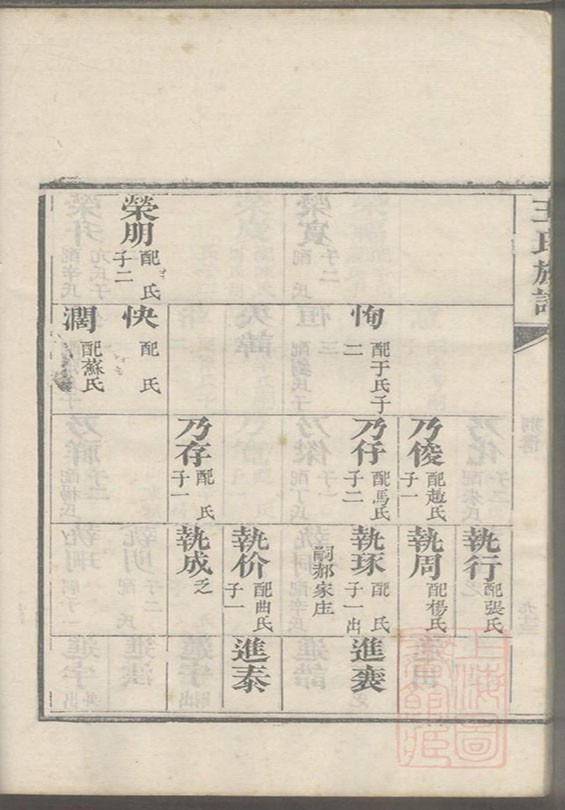 王氏族譜
執行
配張氏
乃俊
配趙氏
子一
執周
配楊氏
恂
配于氏子
二
乃仔
配馬氏
子二
執琢
配 氏
子一出
嗣郝家庄
進裵
執价
配曲氏
子一
進泰
乃存
配 氏
子一
執成
乏
榮朋
配 氏
子二
快
配 氏
濶
配蘇氏